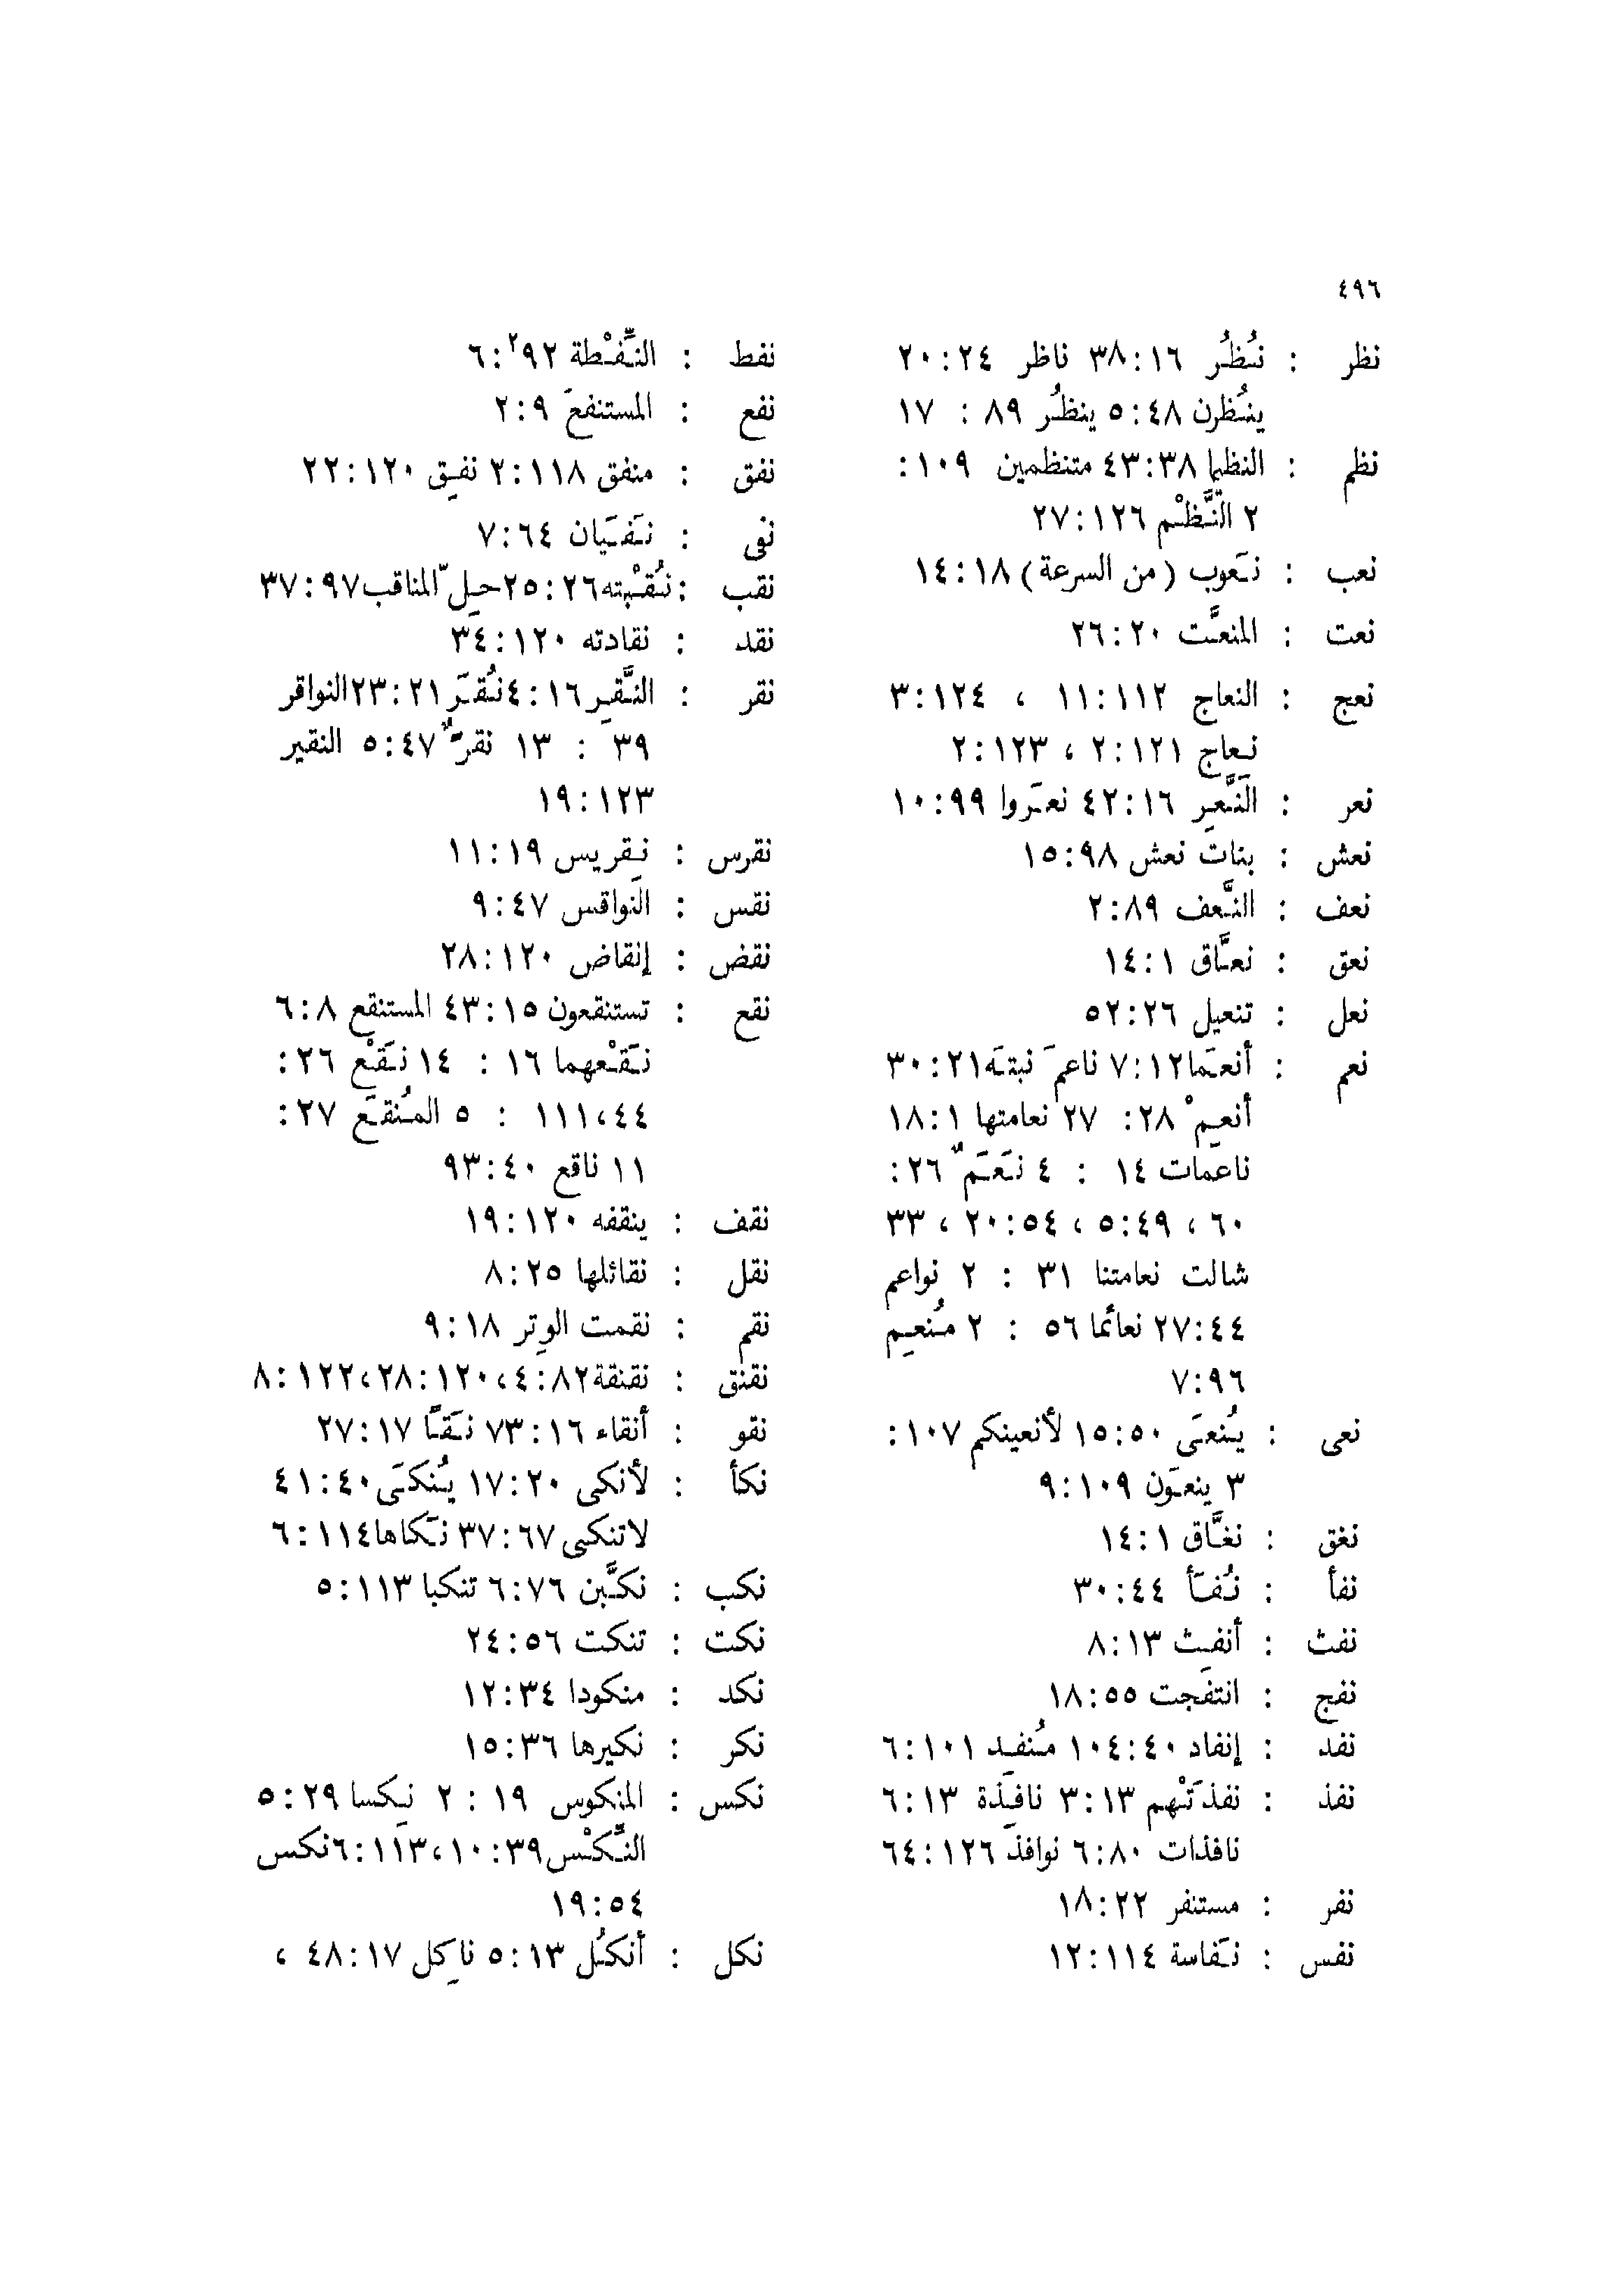 ٤٩٦
نظر : نُظُر ١٦:٣٨ ناظر ٢٤:٢٠
يَنظُرن ٤٨:٥ ينظُر ٨٩ : ١٧
نظم : النظيما ٣٨:٤٣ متنظمين ١٠٩:
٢ النَّظْم ١٢٦:٢٧
نعب : نَعوب (من السرعة) ١٨:١٤
نعت : المنعَّت ٢٠:٢٦
نعج : النعاج ١١٢:١١ ، ١٢٤:٣
نِعاج ١٢١:٢ ، ١٢٣:٢
نعر : النَّعِر ١٦:٤٢ نعَروا ٩٩:١٠
نعش : بنات نعش ٩٨:١٥
نعف : النَّعف ٨٩:٢
نعق : نعَّاق ١:١٤
نعل : تنعيل ٢٦:٥٢
نعم : أنعَما ١٢:٧ ناعمَ نبتَه ٢١:٣٠
أنعِمْ ٢٨: ٢٧ نعامتها ١:١٨
ناعمات ١٤ : ٤ نَعَمٌ ٢٦:
٦٠ ، ٤٩:٥ ، ٥٤:٢٠ ، ٣٣
شالت نعامتنا ٣١ : ٢ نواعم
٤٤:٢٧ نعائما ٥٦ : ٢ مُنعِم
٩٦:٧
نعى : يُنعَى ٥٠:١٥ لأنعينكم ١٠٧:
٣ ينعَون ١٠٩:٩
نغق : نغَّاق ١:١٤
نفأ : نُفَأ ٤٤:٣٠
نفث : أنفِث ١٣:٨
نفج : انتفَجت ٥٥:١٨
نفد : إنفاد ٤٠:١٠٤ مُنفِد ١٠١:٦
نفذ : نفذَتْهم ١٣:٣ نافِذة ١٣:٦
نافذات ٨٠:٦ نوافذ ١٢٦:٦٤
نفر : مستنفر ٢٢:١٨
نفس : نَفاسة ١١٤:١٢
نفط : النِّفْطة ٩٢٢:٦
نفع : المستنفعَ ٩:٢
نفق : منفق ١١٨:٢ نفِق ١٢٠:٢٢
نفى : نَفَيَان ٦٤:٧
نقب : نُقْبته ٢٦:٢٥ حِلّ المناقب ٩٧:٣٧
نقد : نقادته ١٢٠:٣٤
نقر : النَّقِر ١٦:٤ نُقَر ٢١:٢٣ النواقر
٣٩ : ١٣ نقرةٌ ٤٧:٥ النقير
١٢٣:١٩
نقرس : نِقريس ١٩:١١
نقس : النواقس ٤٧:٩
نقض : إنقاض ١٢٠:٢٨
نقع : تستنقعون ١٥:٤٣ المستنقع ٨:٦
نَقْعهما ١٦ : ١٤ نَقْع ٢٦:
٤٤،١١١ : ٥ المُنقَع ٢٧:
١١ ناقع ٤٠:٩٣
نقف : ينقفه ١٢٠:١٩
نقل : نقائلها ٢٥:٨
نقم : نقمت الوِتر ١٨:٩
نقنق : نقنقة ٨٢:٤، ١٢٠:٢٨، ١٢٢:٨
نقو : أنقاء ١٦:٧٣ نَقًا ١٧:٢٧
نكأ : لأنكى ٢٠:١٧ يُنكَى ٤٠:٤١
لاتنكى ٦٧:٣٧ نَكاها ١١٤:٦
نكب : نكَّبن ٧٦:٦ تنكبا ١١٣:٥
نكت : تنكت ٥٦:٢٤
نكد : منكودا ٣٤:١٢
نكر : نكيرها ٣٦:١٥
نكس : المنكوس ١٩ : ٢ نِكسا ٢٩:٥
النِّكْس ٣٩:١٠، ١١٣:٦ نكس
٥٤:١٩
نكل : أنكُل ١٣:٥ ناكِل ١٧:٤٨ ،